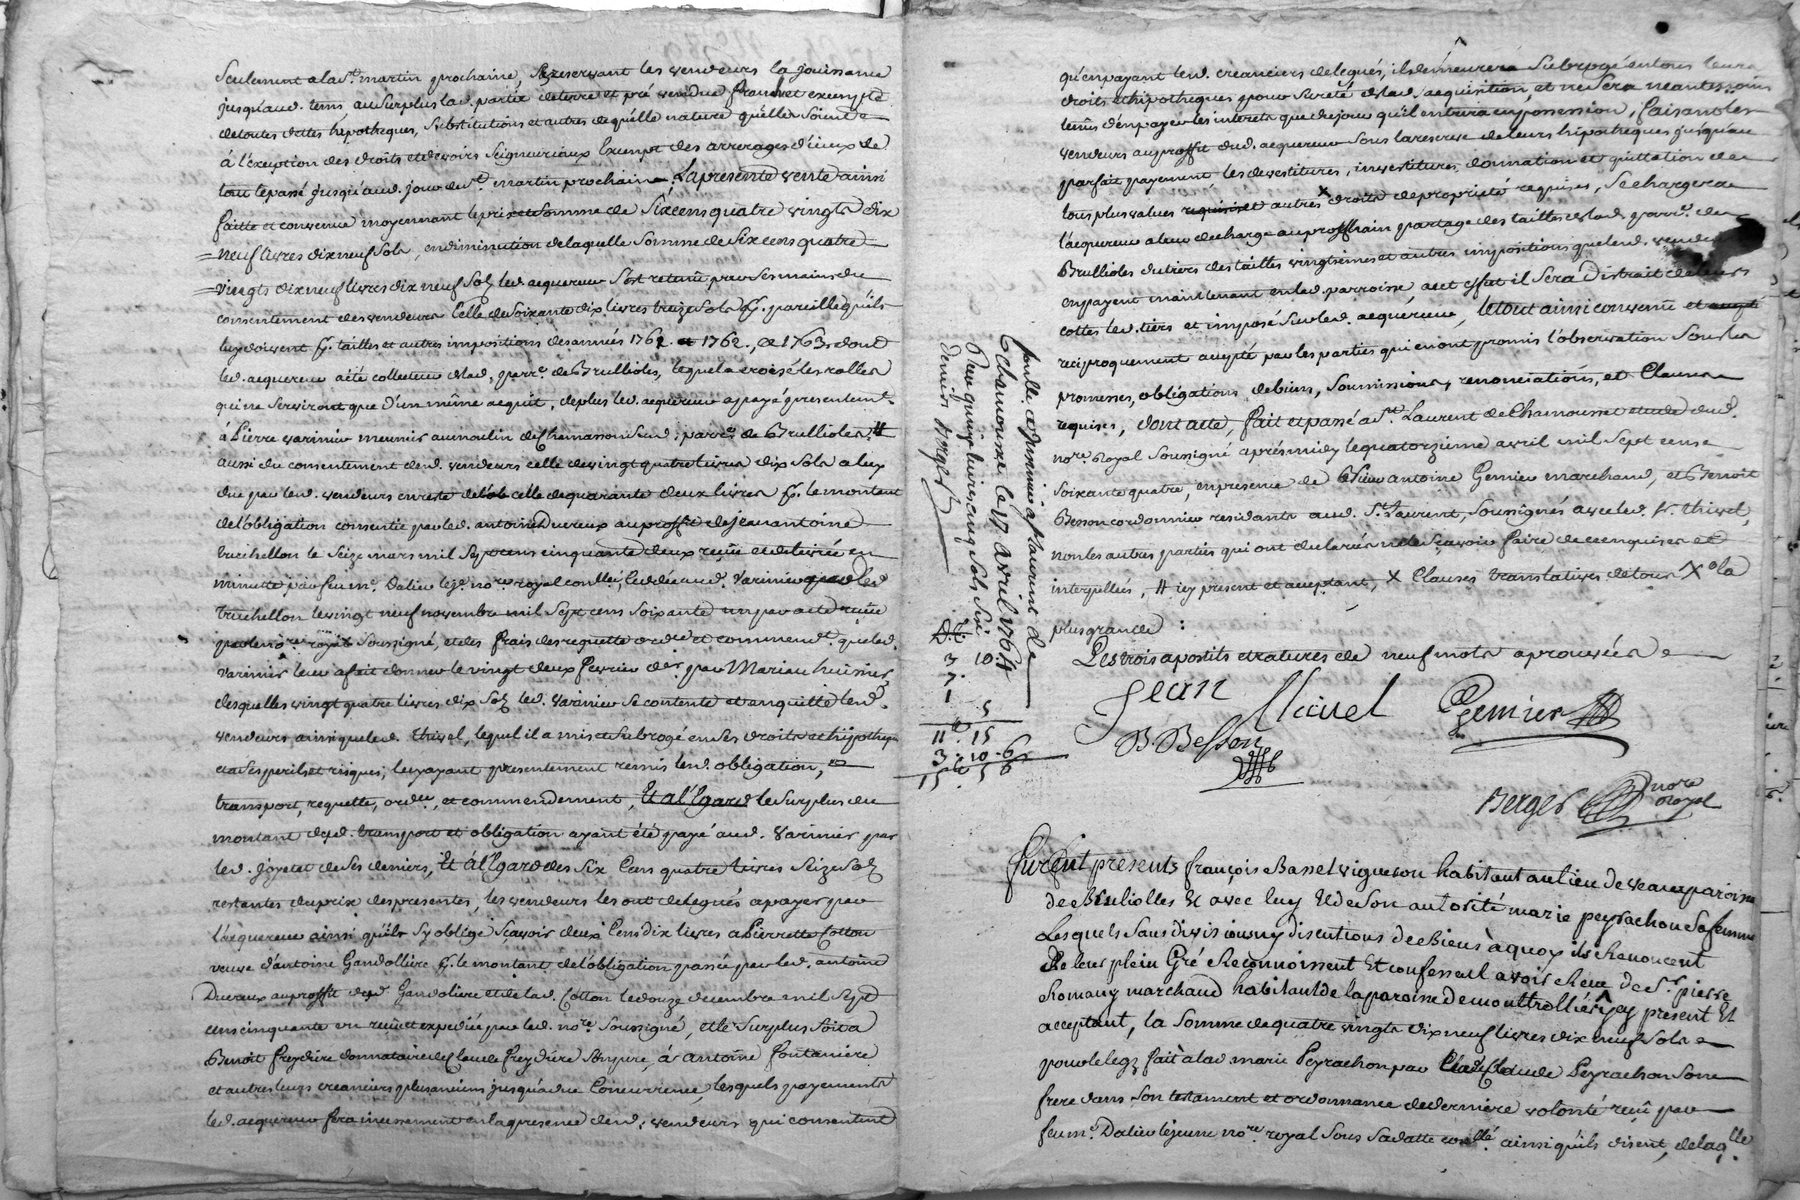 seulement a la St. martin prochaine, se reservant les vendeurs la jouissance
jusqu'aud. tems, au surplus lad. partie de terre et pré vendue franche et exempte
de toutes dettes hipotheques, substitutions et autres de quelle nature quelles soient
à l'exeption des droits et devoirs seigneuriaux Exempt des arrerages d'iceux de
tout le passé jusqu'aud. jour de St. martin prochaine, La presente vente ainsi
faitte et convenue moyennant le prix et somme de Six cens quatre vingts dix
neuf livres dix neuf sols, en diminution de laquelle somme de Six cens quatre
vingts dix neuf livres dix neuf sols led. acquereur s'est retenu par ses mains du
consentement des vendeurs Celle de soixante dix livres treize sols pr. pareille qu'ils
luy doivent pr. tailles et autres impositions des années 1761 et 1762, et 1763 dont
led. acquereur a été collecteur de lad. parr.e de Brullioles, lequel a croisé les rolles
qui ne serviront que d'un même acquit, de plus led. acquereur a payé presentemt.
à Pierre varinier meunier au moulin de Chamasson susd. parr.e de Brullioles #
aussi du consentement desd. vendeurs celle de vingt quatre livres dix sols a luy
due par led. vendeurs en reste de l'ob celle de quarante deux livres pr. le montant
de l'obligation consentie par led. antoine Dueraux au proffit de Jean antoine
truchellon le seize mars mil sept cens cinquante deux reçue et delivrée en
minutte par feu me. Dalieu leje. nore. royal coullé, Cedée aud. varinier par led
truchellon le vingt neuf novembre mil sept cens soixante un par acte reçu
par le nore. royal soussigné, et des frais des requette ordce. et commandt. que led.
varinier leur a fait donner le vingt deux fevrier der. par Mariau huissier
desquelles vingt quatre livres dix sols led. varinier se contente et en quitte lesd.
vendeurs ainsi que led. thivel, lequel il a mis et subrogé en ses droits et hipotheque
et a ses perils et risques, luy ayant presentement remis lesd. obligation,
transport, requette, ordce, et commendement, Et a l'Egard le surplus du
montant desd. transport et obligation ayant été payé aud. varinier par
led. Joyetet de ses deniers, Et a l'Egard des Six Cens quatre livres seize sols
restantes du prix des presentes, les vendeurs les ont delegués a payer par
l'acquereur ainsi qu'il s'y oblige sçavoir deux Cens dix livres a Pierrette Cotton
veuve d'antoine Gandollière pr. le montant de l'obligation passée par led. antoine
Dueraux au proffit dud Gandoliere et de lad. Cotton le douze decembre mil sept
cens cinquante un reçue et expediée par led. nore. soussigné, et le surplus soit a
Benoit freydiere donnataire de Claude freydiere son pere, à antoine fontaniere
et autres leurs creanciers plus anciens jusqu'a due Concurrence, lesquels payements
led. acquereur fera incessament en la presence desd. vendeurs qui consentent
qu'en payant lesd. creanciers delegués, il demeurera subrogé en tous leurs
droits et hipotheques pour sureté de lad. acquisition, et ne sera neantmoins
tenu d'en payer les interets que du jour qu'il entrera en possession, faisant les
vendeurs au proffit dud. acquereur sous la reserve de leurs hipotheques jusqu'au
parfait payement les devestitures, investitures, donnation et quittation de
tous plus values requises et autres X droits de proprieté requises, se chargera
l'acquereur a leur decharge au proschain partage des tailles de lad. parr.e de
Brullioles du tiers des tailles vingtiemes et autres impositions que lesd. vendeurs
en payent maintenant en lad. parroisse, a cet effet il sera distrait de leurs
cottes led. tiers et imposé sur led. acquereur, le tout ainsi convenu et accepté
reciproquement accepté par les parties qui en ont promis l'observation sous les
promesses, obligations de biens, soumissions, renonciations, et Clauses
requises, dont acte fait et passé a St. Laurent de Chamousset etude dud.
nore. royal soussigné après midy le quatorzieme avril mil sept cens
soixante quatre, en presence de sieur antoine Gemier marchand, et Benoit
Besson cordonnier residants aud. St. Laurent, soussignés avec led. Sr. thivel,
non les autres parties qui ont declaré ne le sçavoir faire de ce enquises et
interpellées, # icy present et acceptant, X Clauses translatives de tous X a la
plus grande :
Les trois apostils et ratures de neuf mots aprouvées
Jean Thivel Gemier
B. Besson
Berger nore royal
Controllé et insinué a St laurent de
Chamousset le 17 avril 1764
Reçu quinze livres cinq sols six
deniers Berger
D.C.
3 10
7
1 5
11. 15
3. 10. 6
15. 5 6
Furent presents françois Bassel vigneron habitant au lieu de veau paroisse
de Brulliolles Et avec luy Et de son autorité marie peyrachon sa femme
Lesquels sans division ny discutions de Biens à quoy ils Renoncent
De leur plein Gré Reconnoissent Et confessent avoir Reçu de Sr. pierre
Romany marchand habitant de la paroisse de montrollier icy present Et
acceptant, la somme de quatre vingts dix neuf livres dix neuf sols
pour le legs fait à lad marie Peyrachon par Claude Peyrachon son
frere dans son testament et ordonnance de derniere volonté reçu par
feu me. Dalieu le jeune nore. royal sous sa datte coullé ainsi qu'ils disent, de laqlle.